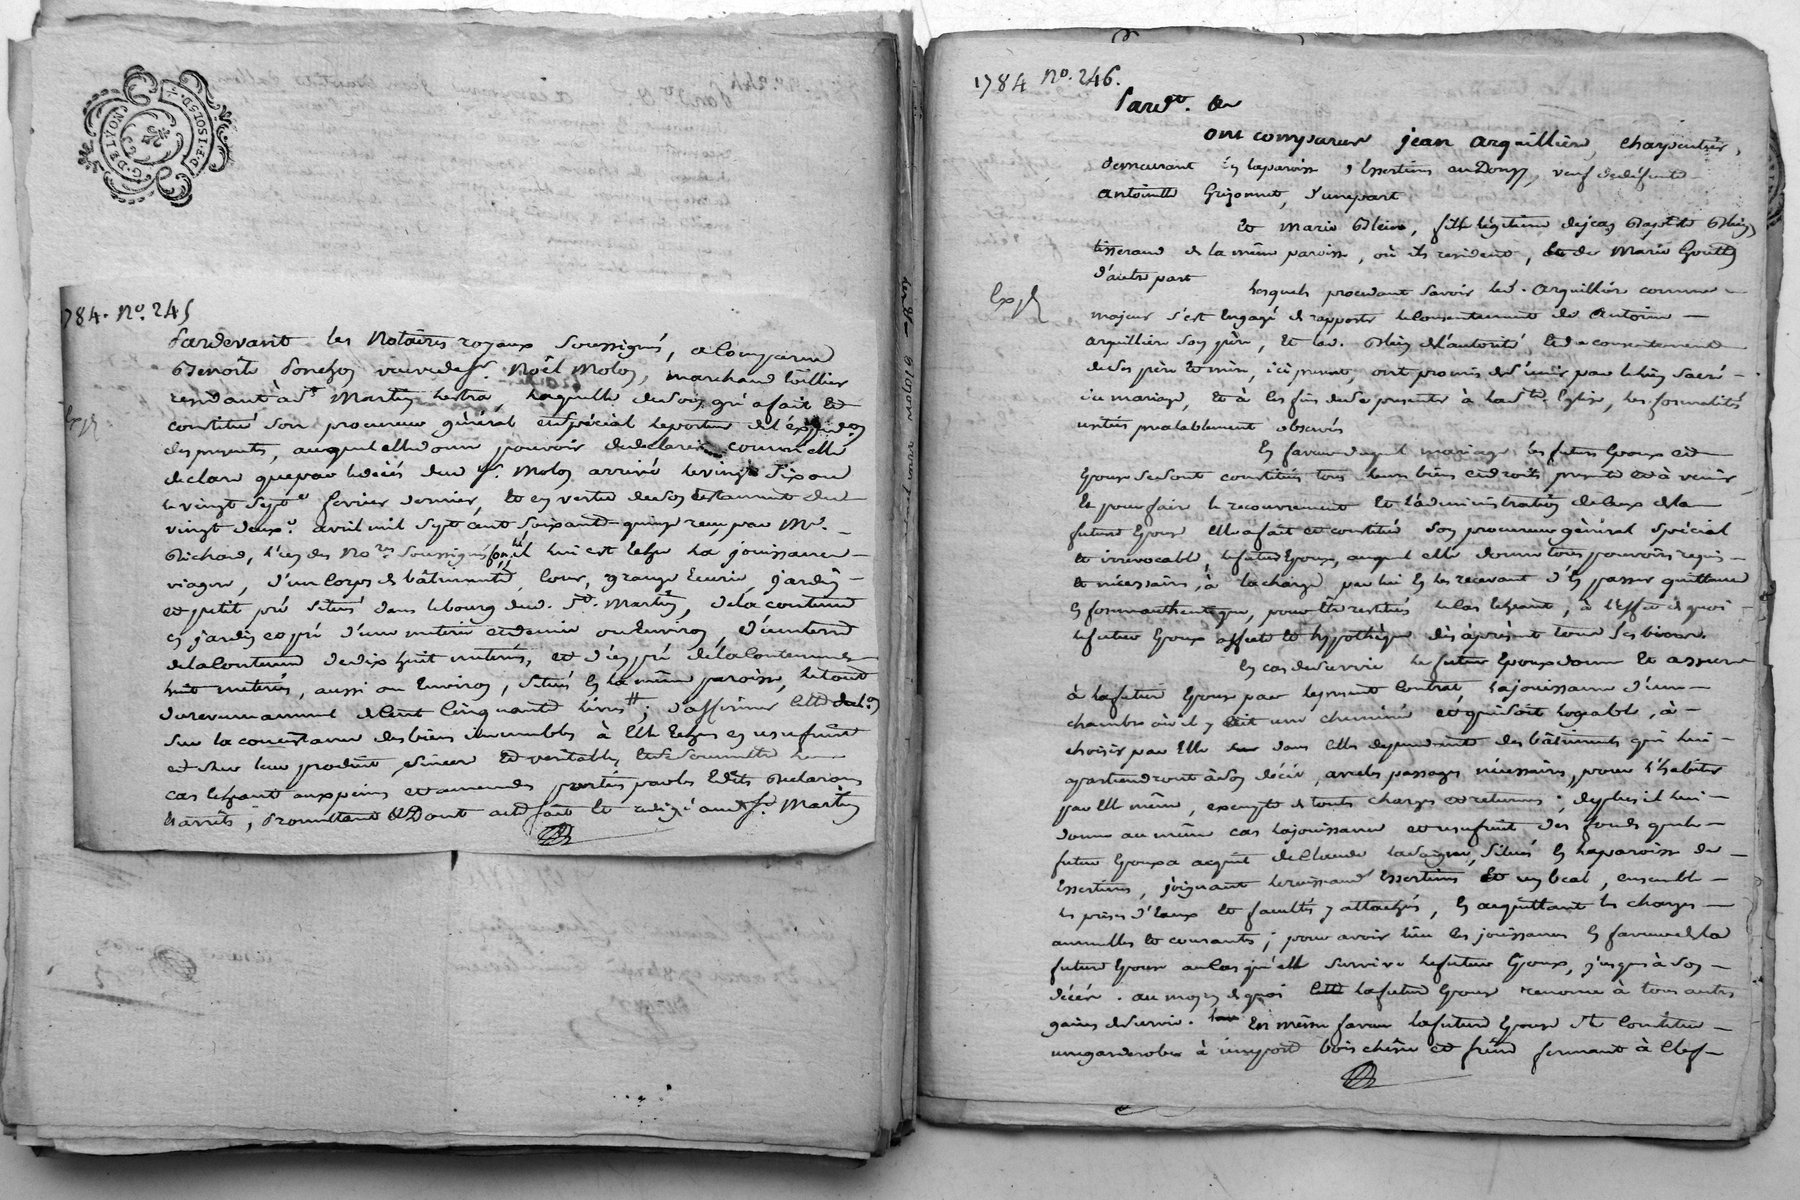 G. DE LYON
D. F. 1 SOL 5 D.
1784. No. 245
Pardevant les Notaires royaux soussignés, a Comparu
Benoite Ponchon veuve de sr. Noël Molon, marchand toillier
residant à St. Martin Lestra, Laquelle de son gré a fait et
constitué son procureur général et spécial le porteur de l'éxpedon
des presentes, auquel elle donne pouvoir de declarer comme elle
declare que par le décés dud. sr. Molon arrivé le vingt six ou
le vingt sept e fevrier dernier, et en vertu de son testament du
vingt deux e. avril mil sept cent soixante quinze reçu par Me.
Richard, l'un des No.res soussignés il lui est Legué La jouissance
viagere, d'un Corps de bâtiments, Cour, grange Ecurie, jardin
et petit pré situés dans le bourg dud. St. Martin, de la contenue
en jardin et pré d'une meterée et demie ou Environ, d'une terre
de la Contenue de dix huit meterés, et d'un pré de la Contenue de
huit meterés, aussi ou Environ, situés En la même paroisse, le tout
du revenu annuel de Cent Cinquante livres; d'affirmer Cette
sur la consistance des biens immeubles à Elle Legués en usufruit
et sur leur produit, sincere et veritable, et de se soumettre le
cas Echeant aux peines et amendes portés par les Edits Declarations
et arrêts; Promettant &c Dont acte fait et redigé aud. St. Martin
Exp.
1784 No. 246.
Pardt. &a
ont comparu jean arquillière, charpentier,
demeurant En la paroisse d'Essertines en Donzy, veuf de defunte
antoinette Grijonnet, d'une part
et marie Blein, fille légitime de jean Baptiste Blein
tisserand de la même paroisse, où ils resident, et de Marie Goutte
d'autre part
Exp.
Lesquels procedant savoir led. Arquillière comme
majeur s'est Engagé de rapporter le Consentement de Antoine
arquillière son père, et lad. Blein de l'autorité et du consentement
de ses père et mère, ici presents, ont promis de s'unir par le lien sacré
du mariage, et à Ces fins de se presenter à La Ste Eglise, les formalités
usités prealablement observés
En faveur duquel mariage les futurs Epoux et
Epouse se sont constitués tous leurs biens et droits presents et à venir
Et pour faire le recouvrement et l'administration de Ceux de la
future Epouse Elle a fait et constitué son procureur général spécial
et irrévocable, le futur Epoux, auquel elle donne tous pouvoirs requis
et nécessaires, à la charge par lui En les recevant d'En passer quittance
En forme authentique, pour être restitués le Cas Echeant, à l'Effet de quoi
le futur Epoux affecte et hypothèque dès à présent tous ses biens.
En cas de survie le futur Epoux donne et assure
à la future Epouse par le present Contrat, la jouissance d'une
chambre où il y ait une cheminée et qui soit logeable, à
choisir par Elle dans Celles dependantes des bâtiments qui lui
apartiendront à son décés, avec les passages nécessaires, pour l'habiter
par Elle même, exempte de toutes charges et retenues; de plus il lui
donne au même cas la jouissance et usufruit des fonds que le
futur Epoux a acquit de Claude Lavaigne, situés En la paroisse de
Essertines, joignant le ruisseau d'Essertines et un beal, ensemble
les prises d'Eaux et facultés y attachés, En acquittant les charges
annuelles et courantes; pour avoir lieu les jouissances En faveur de la
future Epouse au Cas qu'elle survive le futur Epoux, jusques à son
décés. au moyen de quoi la future Epouse renonce à tous autres
gains de survie. En même faveur la future Epouse s'est Constitué
une garderobe à une porte bois chêne et frêne fermant à Clef